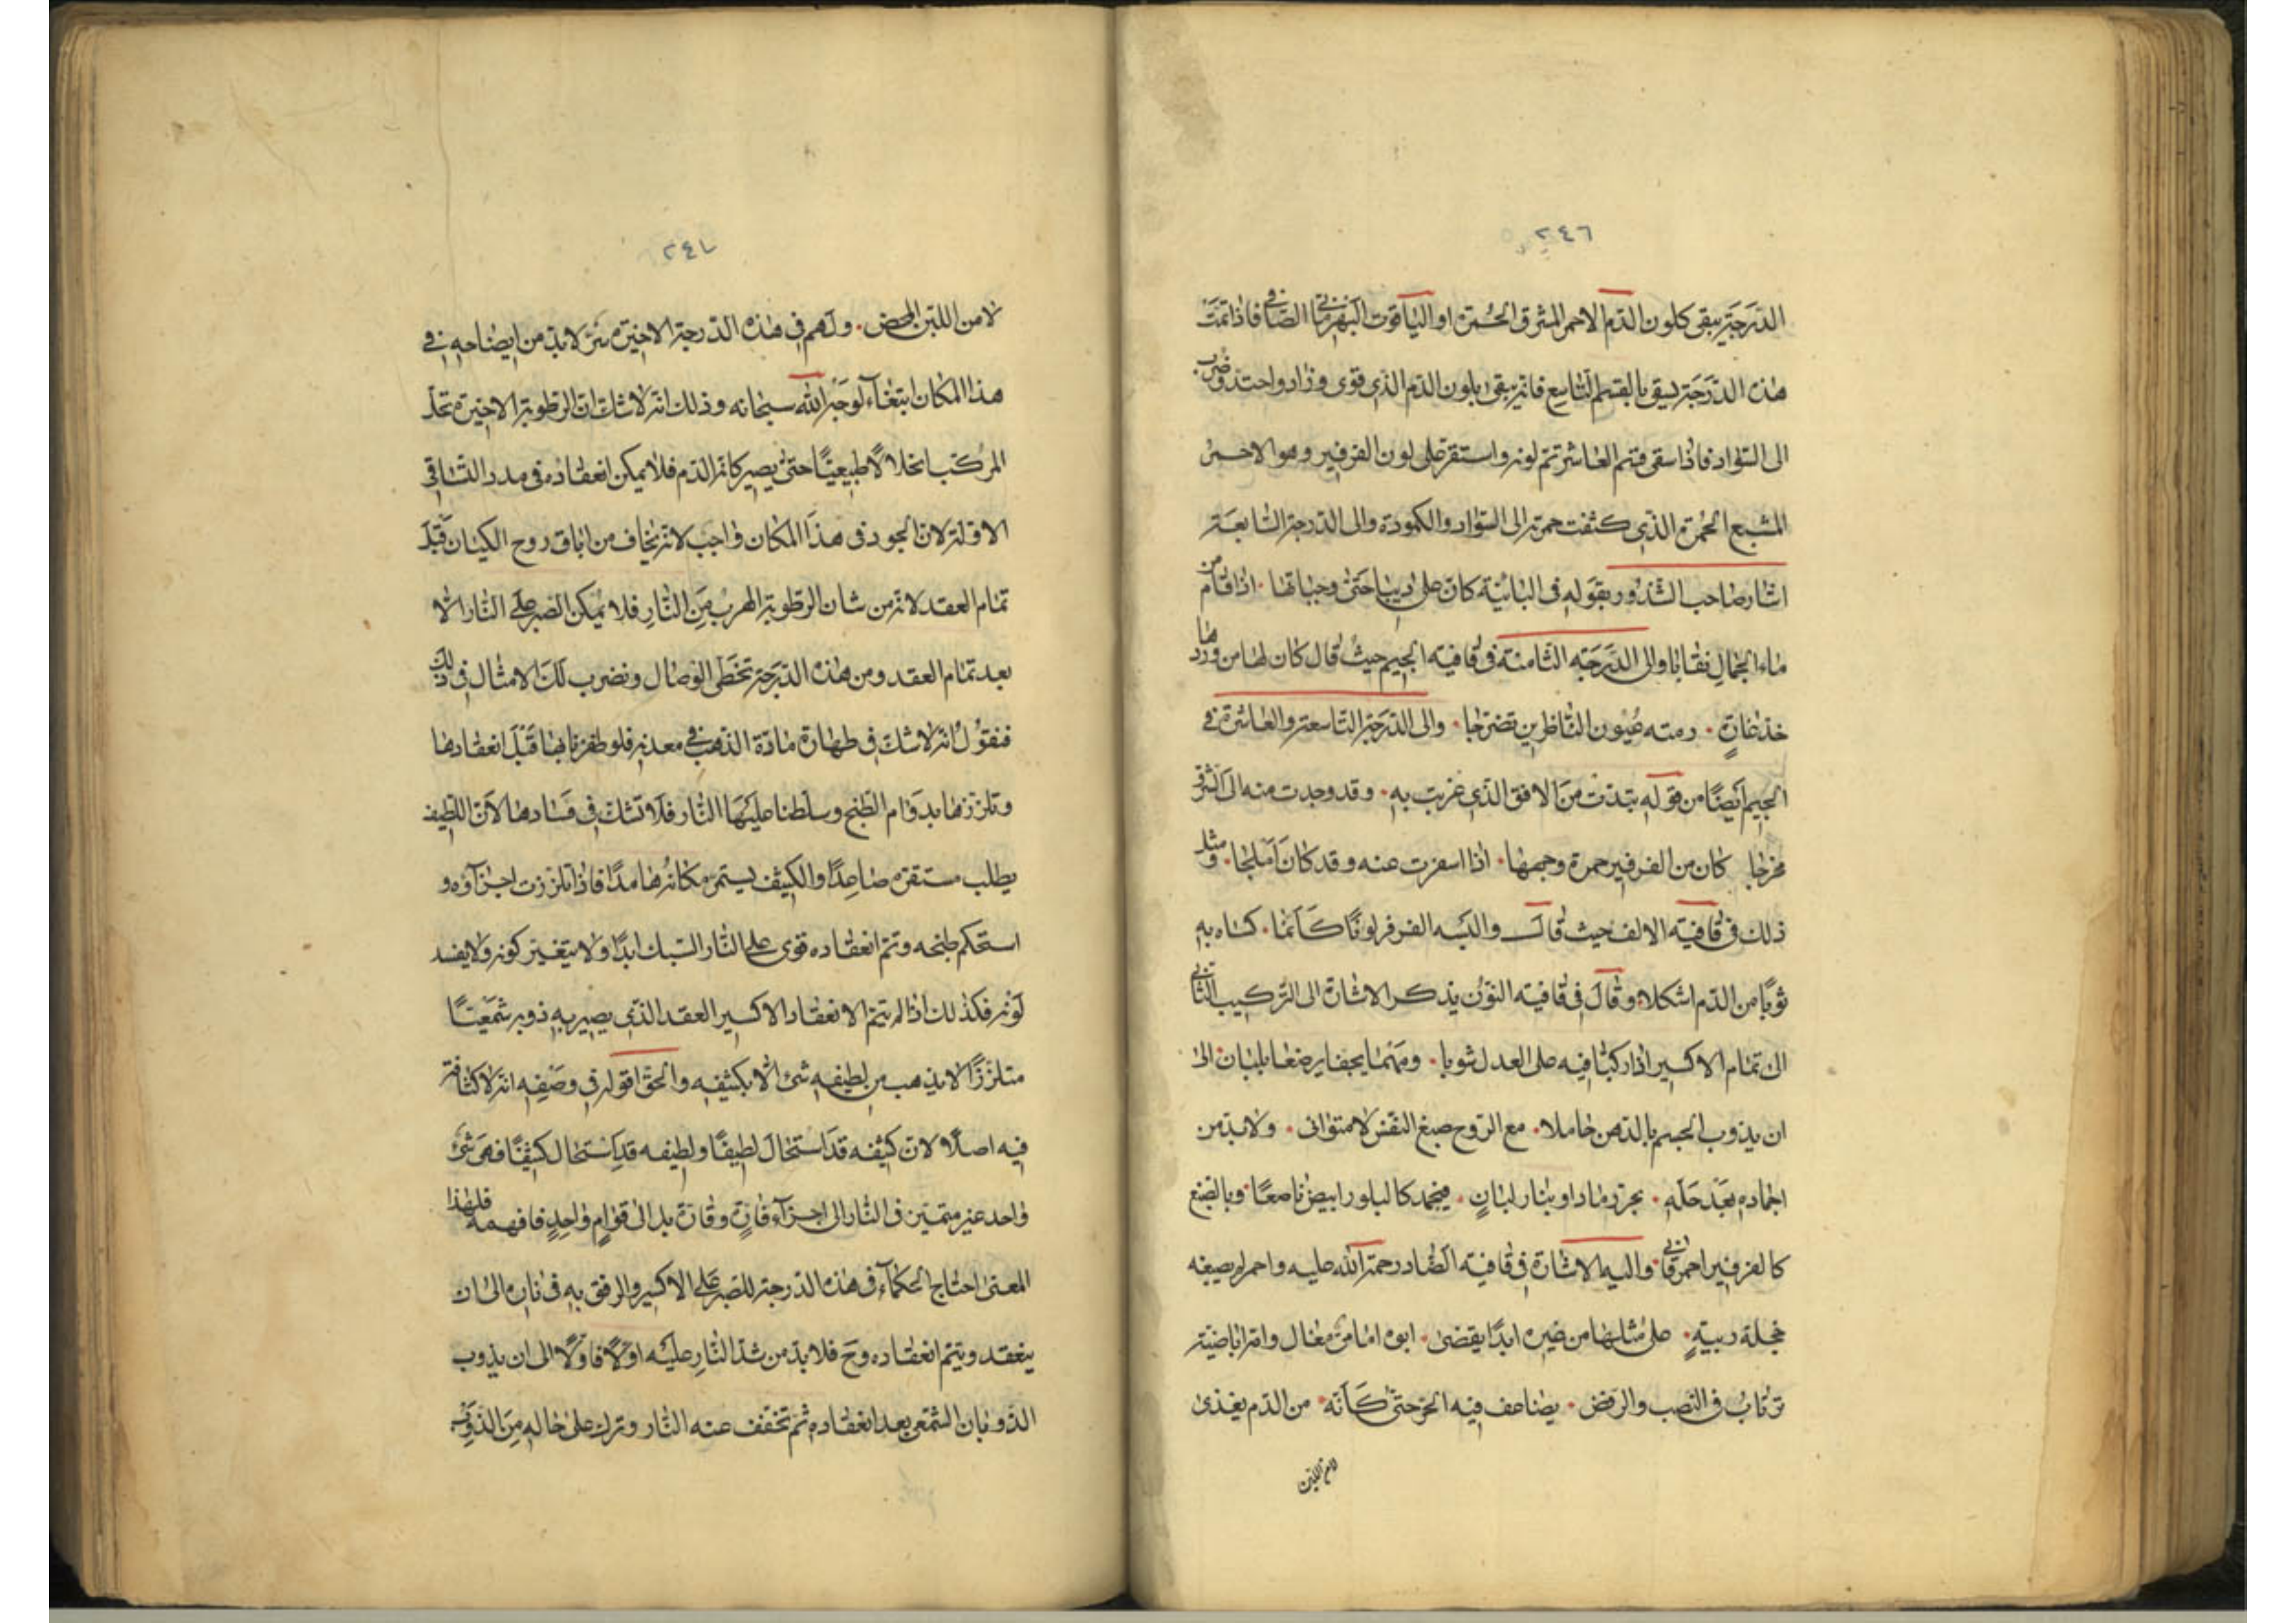 ٢٤٦
الدرجة يبقى كلون الدم الاحمر المشرق الحمرة او الياقوت البهرماني الصافي فاذا تمت
هذه الدرجة يسقى بالقسم التاسع فانه يبقى بلون الدم الذي قوى وزاد واحتد وضرب
الى السواد فاذا سقى قسم العاشر تم لونه واستقر على لون الفرفير وهو الاحمر
المشبع الحمرة الذي كثفت حمرته الى السواد والكمودة والى الدرجة السابعة
اشار صاحب الشذور بقوله في البائية كان على ديباجتي وجباتها اذا قام من
ماء الجمال نقابا والى الدرجه الثامنة في قافيه الجيم حيث قال كان لها من وردها
خد غادة رمته عيون الناظرين تضرجا والى الدرجة التاسعة والعاشرة في
الجيم ايضا من قوله بتدت من الافق الذي غربت به وقد وجدت منه الى الشرق
مخرجا كان من الفرفير حمرة وجهها اذا اسفرت عنه وقد كان املجا ومثل
ذلك في قافية الالف حيث قال والبسه الفرفر لونا كانما كساه به
ثوبا من الدم اشكلا وقال في قافيته النون يذكر الاشارة الى التركيب الثاني
الى تمام الاكسير اذا ركبا فيه على العدل ثوبا ومهما يجفا يرضعا بلبان الى
ان يذوب الجسم بالدهن حاملا مع الروح صبغ النفس لا متوانى ولا بد من
اجماده بعد حله بحر رماد او بنار لبان فيجمد كالبلور ابيض ناصعا وبالصبغ
كالفرفير احمر قاني واليه الاشارة في قافيته الضاد رحمة الله عليه واحمر له صبغه
خجلة ريبة على مثلها من غيره ابدا يقضى ابوه امامى مغال وامه اباضية
ترتاب في النصب والرفض يضاعف فيه الحر حتى كانه من الدم يغذى
لا من اللبن
٢٤٧
لا من اللبن المحض ولهم في هذه الدرجة الاخيرة سر لا بد من ايضاحه في
هذا المكان ابتغاء لوجه الله سبحانه وذلك انه لا شك ان الرطوبة الاخيرة تحل
المركب انحلالا طبيعيا حتى يصير كانه الدم فلا يمكن انعقاده في مدد التساقي
الاولة لان الجمود في هذا المكان واجب لانه يخاف من اباق روح الكيان قبل
تمام العقد لانه من شان الرطوبة الهرب من النار فلا يمكن الصبر على النار الا
بعد تمام العقد ومن هذه الدرجة تخطى الوصال ونضرب لك الامثال في ذلك
فنقول انه لا شك في طهارة مادة الذهب في معدنه فلو ظفرنا بها قبل انعقادها
وتلززها بدوام الطبخ وسلطنا عليها النار فلا تشك في فسادها لان اللطيف
يطلب مستقره صاعدا والكثيف يستمر مكانه هامدا فاذا تلززت اجزاؤه و
استحكم طبخه وتم انعقاده قوى على النار السبك ابدا ولا يتغير كونه ولا يفسد
لونه فكذلك اذا لم يتم الانعقاد الاكسير العقد الذي يصير به ذوبه شمعيا
متلززا لا يذهب من لطيفه شئ الا بكثيفه والحق اقوله في وصفه انه لا كثافة
فيه اصلا لان كثيفه قد استحال لطيفا ولطيفه قد استحال كثيفا فهى شئ
واحد غير متميز في النار الى اجزاء فارة وقارة بل الى قوام واحد فافهمه فلهذا
المعنى احتاج الحكماء في هذه الدرجة للصبر على الاكسير والرفق به في ناره الى ان
ينعقد ويتم انعقاده وح فلا بد من شد النار عليه اولا فاولا الى ان يذوب
الذوبان الشمعي بعد انعقاده ثم تخفف عنه النار وترك على حاله من الذوب